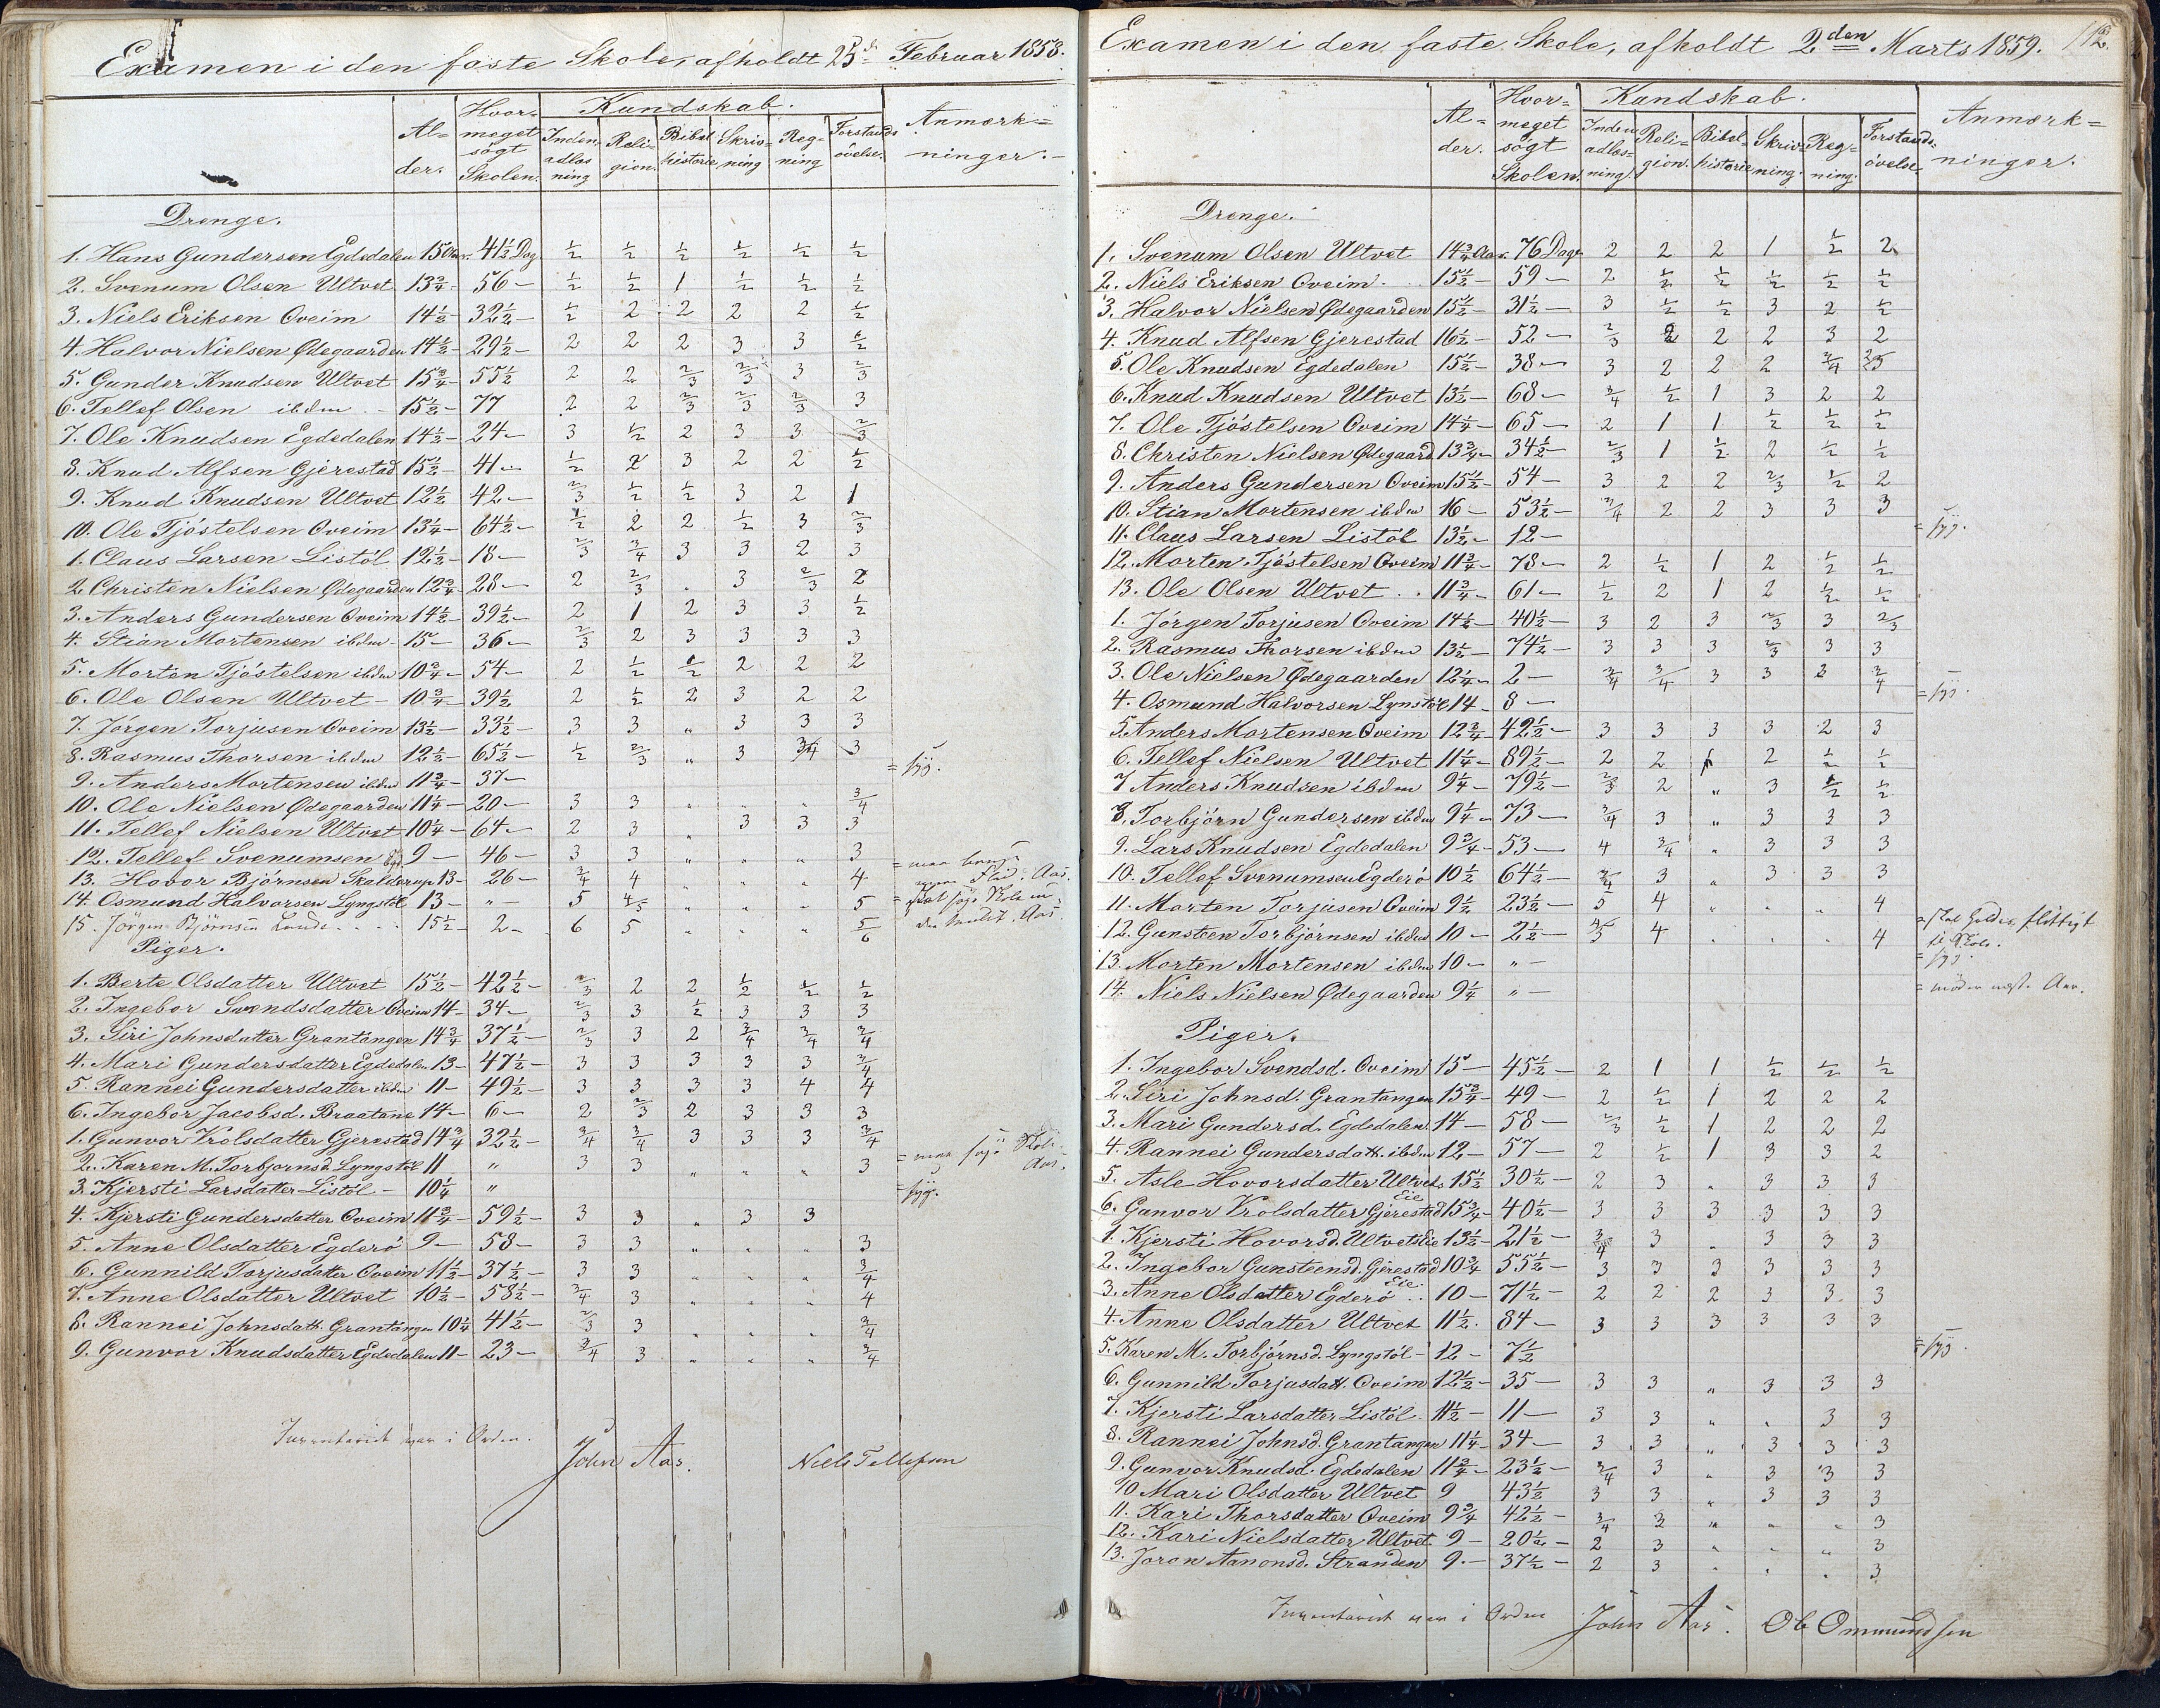 Examen i den faste Skole, afholdt 25de Februar 1858.
Alder. Hvormeget søgt Skolen. Kundskab. Indenadlæsning Religion. Bibelhistorie Skrivning Regning Forstandsøvelse. Anmærkninger.
Drenge.
1. Hans Gundersen Egdedalen 15 Aar. 41½ Dag ½ ½ ½ ½ ½ ½
2. Svenum Olsen Ultvet 13¾ 56 — ½ ½ 1 ½ ½ ½
3. Niels Eriksen Oveim 14½ — 32½ — ½ 2 2 2 2 ½
4. Halvor Nielsen Ødegaarden 14½ — 29½ — 2 2 2 3 3 ½
5. Gunder Knudsen Ultvet 15¾ — 55½ 2 2 2/3 2/3 3 2/3
6. Tellef Olsen ibdm — 15½ — 77 2 2 2/3 2/3 2/3 3
7. Ole Knudsen Egdedalen 14½ — 24 — 3 ½ 2 3 3 2/3
8. Knud Alfsen Gjerestad 15½ — 41 — ½ 2 3 2 2 ½
9. Knud Knudsen Ultvet 12½ 42 — 2/3 ½ ½ 3 2 1
10. Ole Tjøstelsen Oveim 13¼ — 64½ — ½ 2 2 ½ 3 2/3
1. Claus Larsen Listøl 12½ — 18 — 2/3 3/4 3 3 2 3
2. Christen Nielsen Ødegaarden 12¾ — 28 — 2 2/3 . 3 2/3 2
3. Anders Gundersen Oveim 14½ — 39½ — 2 1 2 3 3 ½
4. Stian Mortensen ibdm — 15 — 36 — 2/3 2 3 3 3 3
5. Morten Tjøstelsen ibdm 10¾ — 54 — 2 ½ ½ 2 2 2
6. Ole Olsen Ultvet — 10¾ — 39½ 2 ½ 2 3 2 2
7. Jørgen Torjusen Oveim 13½ — 33½ — 3 3 „ 3 3 3
8. Rasmus Thorsen ibdm 12½ — 65½ — ½ 2/3 „ 3 3/4 3
9. Anders Mortensen ibdm 11¾ — 37 — = syg.
10. Ole Nielsen Ødegaarden 11¼ — 20 — 3 3 „ „ „ 3/4
11. Tellef Nielsen Ultvet — 10¼ — 64 — 2 3 „ 3 3 3
12. Tellef Svenumsen Egd. 9 — 46 — 3 3 „ „ „ 3
13. Hovor Bjørnsen Skalderup 13 — 26 — 3/4 4 „ „ „ 4 = maa bruge mere Flid. Aas.
14. Osmund Halvorsen Lyngstøl 13 — „ — 5 4/5 „ „ „ 5
15. Jørgen Bjørnsen Lunde . . . . 15½ — 2 — 6 5 „ „ „ 5/6
Piger.
1. Berte Olsdatter Ultvet 15½ — 42½ — 2/3 2 2 ½ ½ ½
2. Ingebor Svendsdatter Oveim 14 — 34 — 2/3 3 ½ 3 3 3
3. Siri Johnsdatter Grantangen 14¾ 37½ — 2/3 3 2 3/4 3/4 3/4
4. Mari Gundersdatter Egdedalen 13 — 47½ — 3 3 3 3 3 3/4
5. Rannei Gundersdatter ibdm 11 — 49½ — 3 3 3 3 4 4
6. Ingebor Jacobsd. Braatane 14 — 6 — 2 2/3 2 3 3 3
1. Gunvor Trolsdatter Gjerestad 14¾ 32½ — 3/4 3/4 3 3 3 3/4
2. Karen M. Torbjørnsd. Lyngstøl 11 „ 3 3 „ „ „ 3 = maa søge Skole. Aas.
3. Kjersti Larsdatter Listøl — 10¼ „ = syg.
4. Kjersti Gundersdatter Oveim 11¾ — 59½ — 3 3 „ 3 3
5. Anne Olsdatter Egderø 9 — 58 — 3 3 „ „ „ 3
6. Gunnild Torjusdatter Oveim 11½ — 37½ — 3 3 „ „ „ 3/4
7. Anne Olsdatter Ultvet 10½ — 58½ — 3/4 3 „ „ „ 4
8. Rannei Johnsdatt. Grantangen 10¼ 41½ — 2/3 3 „ „ „ 3/4
9. Gunvor Knudsdatter Egdedalen 11 — 23 — 3/4 3 „ „ „ 3/4
Inventariet var i Orden.
John Aas. Niels Tellefsen
Examen i den faste Skole, afholdt 2den Marts 1859. 112.
Alder. Hvormeget søgt Skolen. Kundskab. Indenadlæsning. Religion. Bibelhistorie Skrivning. Regning. Forstandsøvelse Anmærkninger.
Drenge.
1. Svenum Olsen Ultvet 14¾ Aar. 76 Dage 2 2 2 1 ½ 2
2. Niels Eriksen Oveim 15½ — 59 — 2 ½ ½ ½ ½ ½
3. Halvor Nielsen Ødegaarden 15½ — 31½ — 3 ½ ½ 3 2 ½
4. Knud Alfsen Gjerestad 16½ — 52 — 2/3 2 2 2 3 2
5. Ole Knudsen Egdedalen 15½ — 38 — 3 2 2 2 3/4 2/3
6. Knud Knudsen Ultvet 13½ — 68 — 3/4 ½ 1 3 2 2
7. Ole Tjøstelsen Oveim 14¼ — 65 — 2 1 1 ½ ½ ½
8. Christen Nielsen Ødegaard. 13¾ — 34½ — 2/3 1 ½ 2 ½ ½
9. Anders Gundersen Oveim 15½ — 54 — 3 2 2 2/3 ½ 2
10. Stian Mortensen ibdm 16 — 53½ — 3/4 2 2 3 3 3
11. Claus Larsen Listøl 13½ — 12 — = syg.
12. Morten Tjøstelsen Oveim 11¾ — 78 — 2 ½ 1 2 ½ ½
13. Ole Olsen Ultvet . . 11¾ — 61 — ½ 2 1 2 ½ ½
1. Jørgen Torjusen Oveim 14½ — 40½ — 3 2 3 2/3 3 2/3
2. Rasmus Thorsen ibdm 13½ — 74½ — 3 3 3 2/3 3 3
3. Ole Nielsen Ødegaarden 12¼ — 2 — 3/4 3/4 3 3 3 3/4
4. Osmund Halvorsen Lynstøl 14 — 8 — = syg.
5. Anders Mortensen Oveim 12¾ — 42½ — 3 3 3 3 2 3
6. Tellef Nielsen Ultvet 11¼ — 89½ — 2 2 1 2 ½ ½
7 Anders Knudsen ibdm 9¼ — 79½ — 2/3 2 „ 3 ½ ½
8. Torbjørn Gundersen ibdm 9¼ — 73 — 3/4 3 „ 3 3 3
9. Lars Knudsen Egdedalen 9¾ — 53 — 4 3/4 „ 3 3 3
10. Tellef Svenumsen Egderø 10½ 64½ — 3/4 3 „ 3 3 3
11. Morten Torjusen Oveim 9½ 23½ — 5 4 „ „ „ 4
12. Gunsteen Torbjørnsen ibdm 10 — 2½ — 4/5 4 „ „ „ 4 = skal holdes flittigt til Skole.
13. Morten Mortensen ibdm 10 — „ — = syg.
14. Niels Nielsen Ødegaarden 9¼ „ — = møder næste Aar.
Piger.
1. Ingebor Svendsd. Oveim 15 — 45½ — 2 1 1 ½ ½ ½
2. Siri Johnsd. Grantangen 15¾ — 49 — 2 ½ 1 2 2 2
3. Mari Gundersd. Egdedalen 14 — 58 — 2/3 ½ 1 2 2 2
4. Rannei Gundersdatt. ibdm 12 — 57 — 2 ½ 1 3 3 2
5. Asle Hovorsdatter Ultvets Eie 15½ 30½ — 2 3 „ 3 3 3
6. Gunvor Trolsdatter Gjerestad 15¾ — 40½ — 3 3 3 3 3 3
1. Kjersti Hovorsd. Ultvets Eie 13½ — 21½ — 3/4 3 „ 3 3 3
2. Ingebor Gunsteensd. Gjerestad Eie 10¾ 55½ — 3 3 3 3 3 3
3. Anne Olsdatter Egderø . . 10 — 71½ — 2 2 2 3 3 3
4. Anne Olsdatter Ultvet 11½. 84 — 3 3 3 3 3 3
5. Karen M. Torbjørnsd. Lyngstøl — 12 — 7½ = syg
6. Gunnild Torjusdatt. Oveim 12½ — 35 — 3 3 „ 3 3 3
7. Kjersti Larsdatter Listøl. 11½ — 11 — 3 3 „ „ 3 3
8. Rannei Johnsd. Grantangen 11¼ — 34 — 3 3 „ 3 3 3
9. Gunvor Knudsd. Egdedalen 11¾ — 23½ — 3/4 3 „ 3 3 3
10 Mari Olsdatter Ultvet 9 43½ 3 3 „ 3 3 3
11. Kari Thorsdatter Oveim 9¾ 42½ — 3/4 3 „ „ „ 3
12. Kari Nielsdatter Ultvet 9 — 20½ — 2 3 „ „ „ 3
13. Joron Aanonsd. Stranden 9. — 37½ — 2 3 „ „ „ 3
Inventariet var i Orden John Aas. Ole Ommundsen